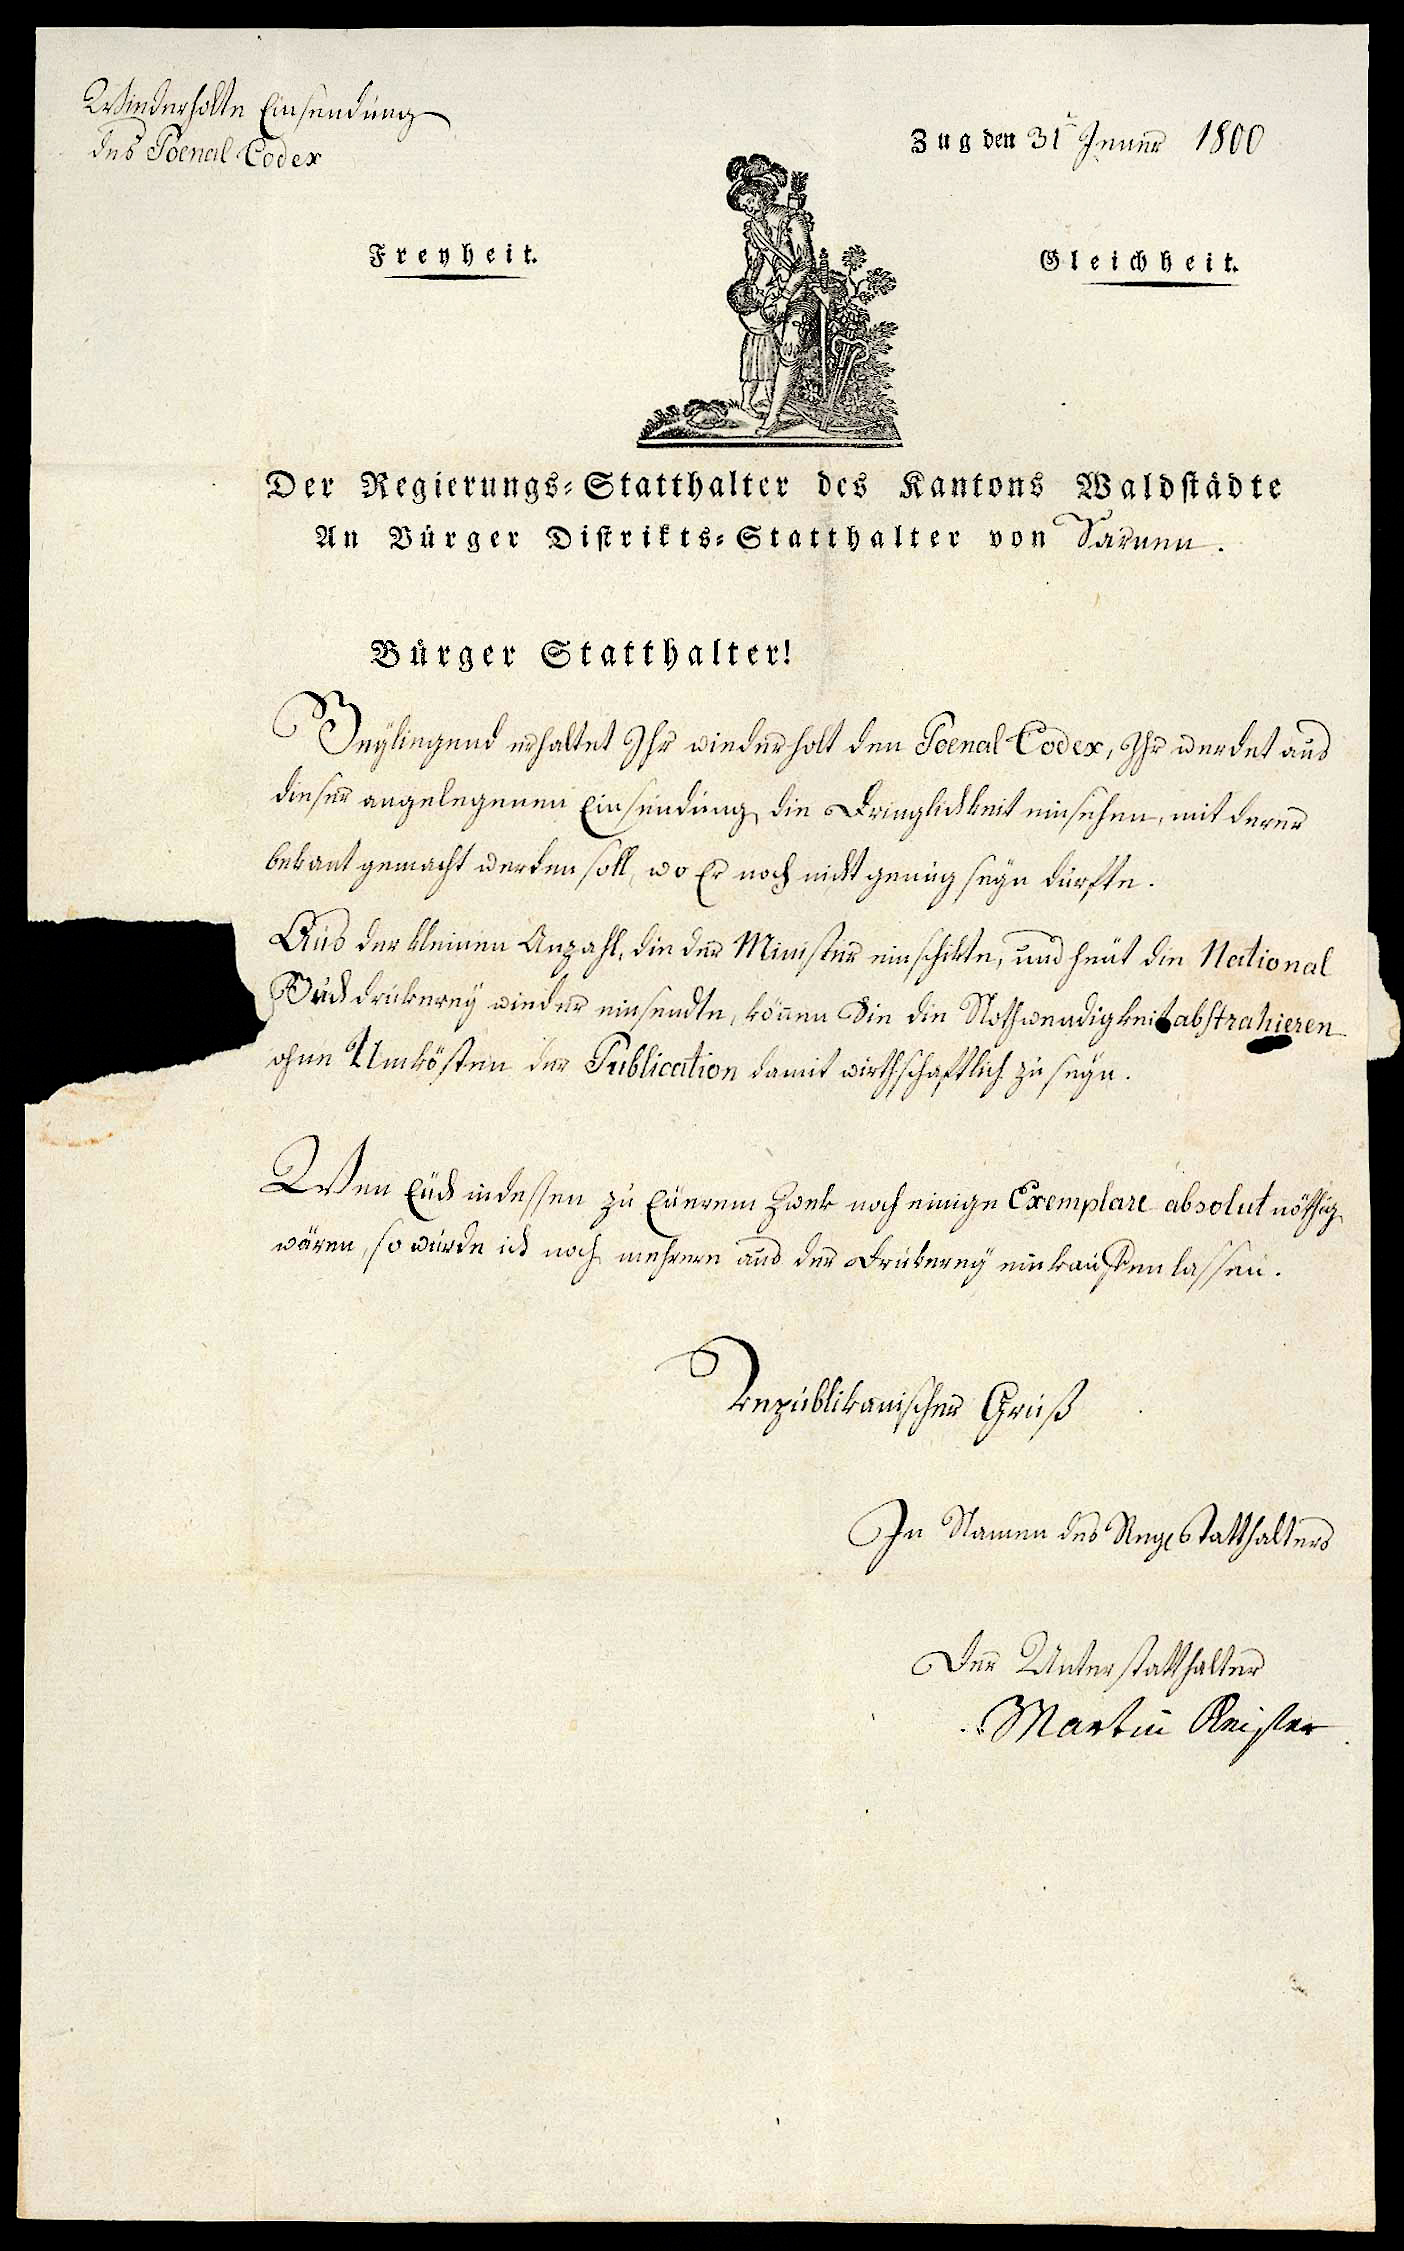 Wiederholte Einsendung
des Poenal Codex
Zug den 31t Jener 1800
Freyheit.
Gleichheit.
Der Regierungs-Statthalter des Kantons Waldstädte
An Bürger Distrikts-Statthalter von Sarnen.
Bürger Statthalter!
Beyliegend erhaltet Ihr wiederholt den Poenal Codex, Ihr werdet aus
dieser angelegenen Einsendung die Dringlichkeit einsehen, mit derer
bekant gemacht werden soll, wo Er noch nicht genug seyn dürfte.
Aus der kleinen Anzahl, die der Minister einschikte, und heüt die National
Buchdrukerey wieder einsendte, können Sie die Nothwendigkeit abstrahieren
ohne Umkösten der Publication damit wirthschaftlich zu seyn.
Wen Eüch indessen zu Eüerem Zwek noch einige Exemplare absolut nöthig
wären, so würde ich noch mehrere aus der Drukerey einkauffen lassen.
Republikanischer Gruß
In Namen des Reg. Statthalters
Der Unterstatthalter
Martin Keiser